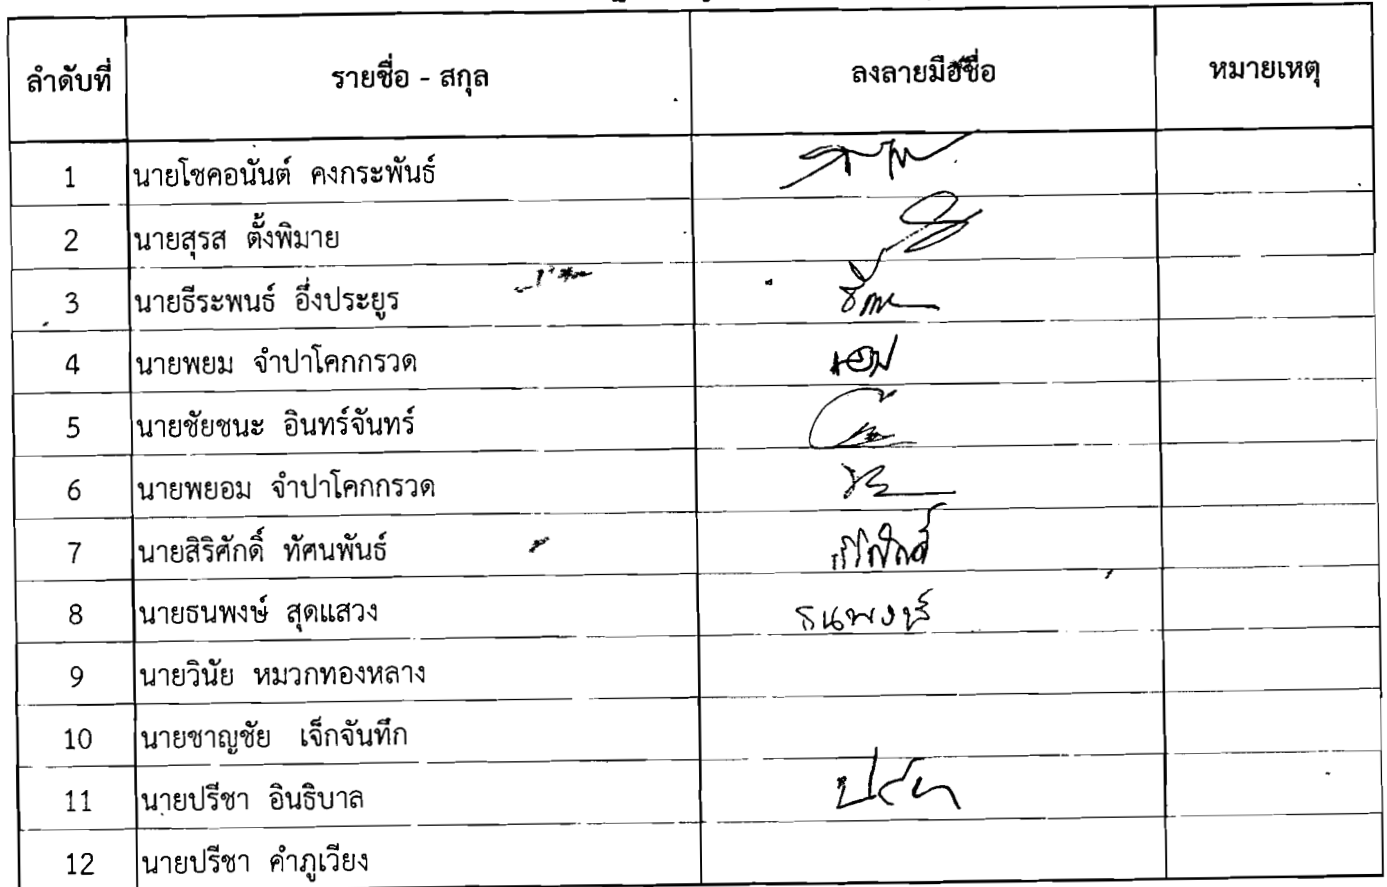 ลำดับที่ รายชื่อ - สกุล ลงลายมือชื่อ หมายเหตุ
1 นายโชคอนันต์ คงกระพันธ์
2 นายสุรส ตั้งพิมาย
3 นายธีระพนธ์ อึ่งประยูร
4 นายพยม จำปาโคกกรวด
5 นายชัยชนะ อินทร์จันทร์
6 นายพยอม จำปาโคกกรวด
7 นายสิริศักดิ์ ทัศนพันธ์
8 นายธนพงษ์ สุดแสวง ธนพงษ์
9 นายวินัย หมวกทองหลาง
10 นายชาญชัย เจ็กจันทึก
11 นายปรีชา อินธิบาล
12 นายปรีชา คำภูเวียง